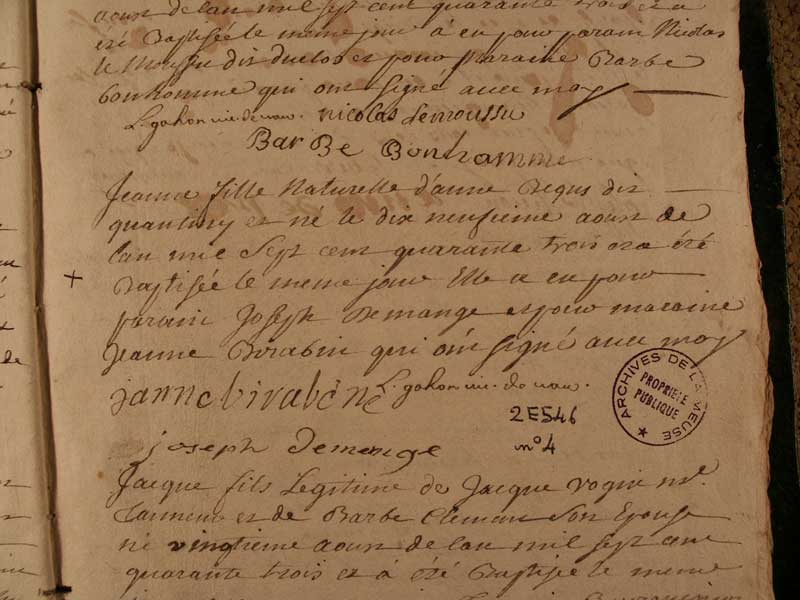 aoust de lan mil sept cent quarante trois et a
été Baptisée le meme jour à eu pour parain Nicolas
le Moussu dit duclos et pour Maraine Barbe
bonhomme qui ont signé avec moy
L. gohon vic. de vau. nicolas Lemoussu
BarBe Bonhomme
Jeanne fille Naturelle d'anne Begus dit
et né le dix neufieme aoust de
lan mil sept cent quarante trois et a été
Baptisée le meme jour Elle a eu pour
parain Joseph Demange et pour maraine
Jeanne qui ont signé avec moy
L. gohon vic. de vau.
joseph demenge
2E546
n°4
ARCHIVES DE LA MEUSE
PROPRIÉTÉ PUBLIQUE
Jacque fils Legitime de Jacque vogin
et de Barbe Clement Son Epouse
né vingtieme aoust de lan mil sept cent
quarante trois et à été Baptisée le meme